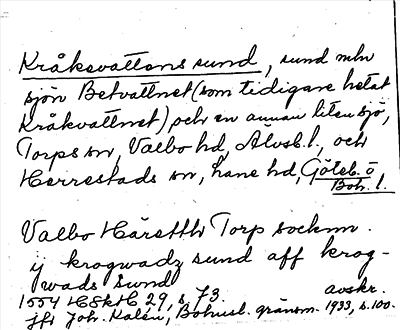 Kråksvattens sund, sund mln
sjön Betvattnet (som tidigare hetat
Kråkvattnet) och en annan liten sjö,
Torps sn, Valbo hd, Älvsb. l., och
Herrestads sn, Lane hd, Göteb. o
Boh. l.
Valbo Häretth Torp socknn.
ij krogwadz sund aff krog-
wads sund
1554 HSkH 29, s. 73. avskr.
jfr Joh. Kalén, Bohusl. gränsm. 1933, s. 100.